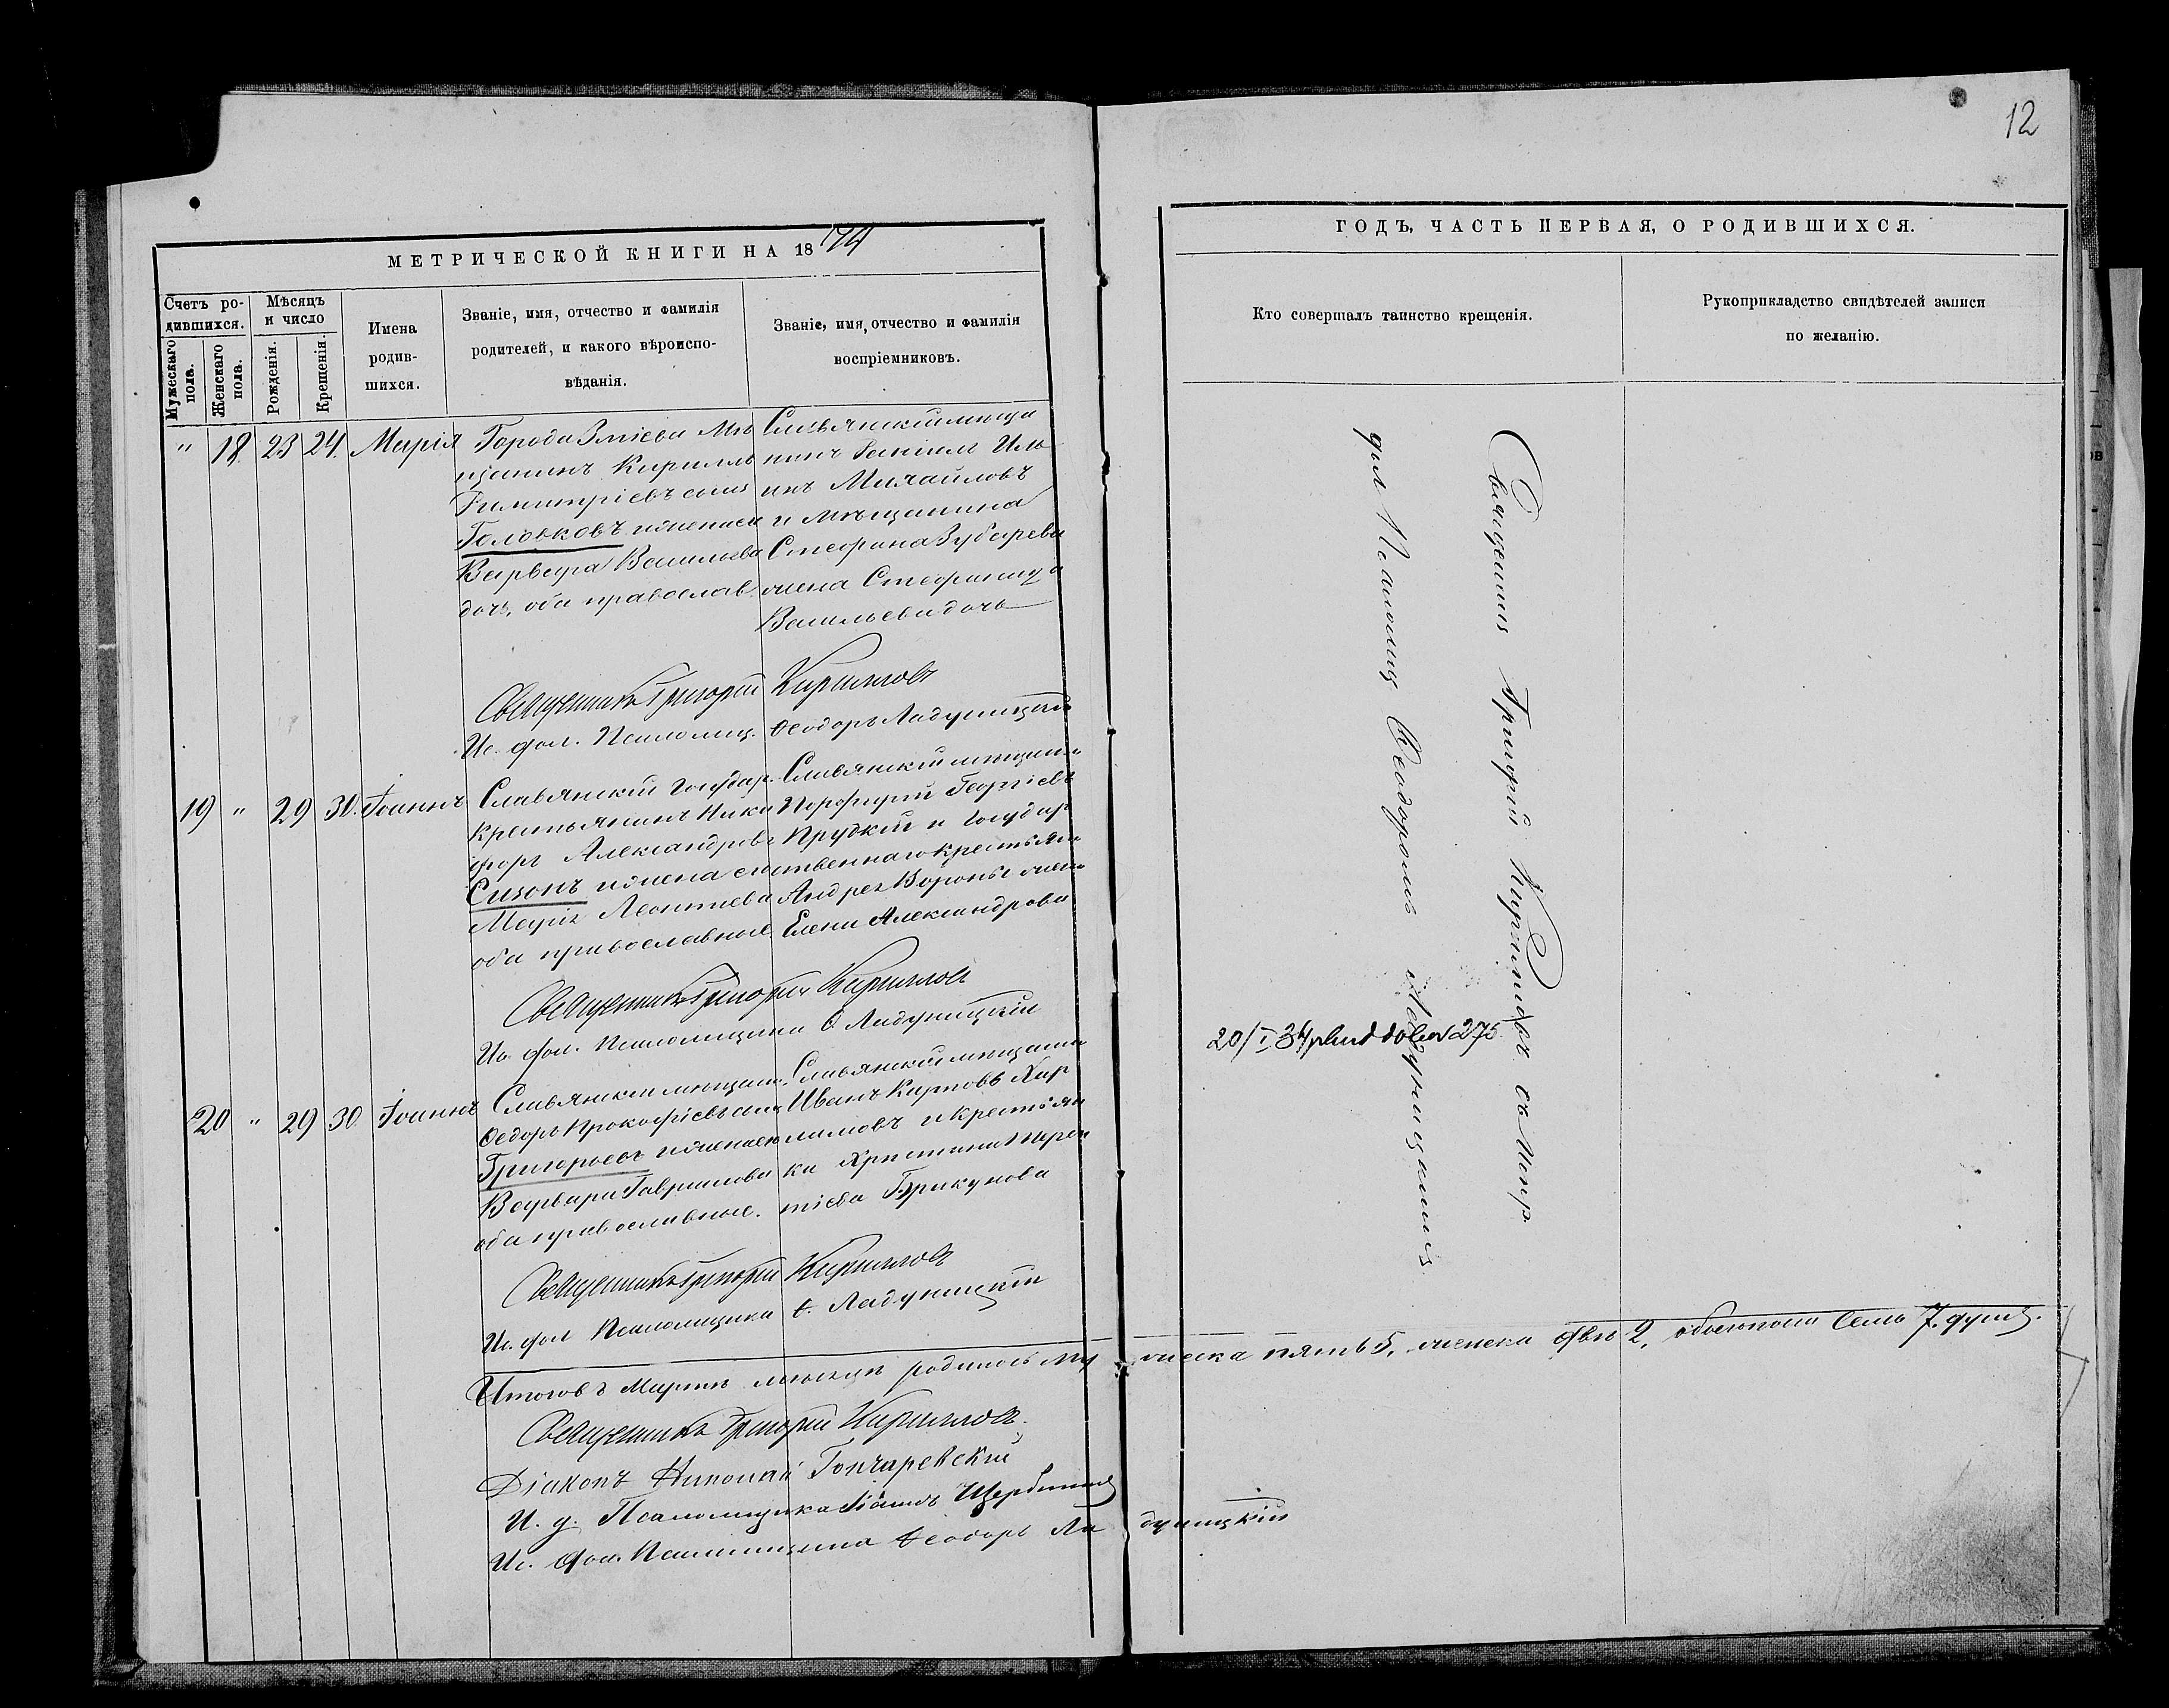 12
МЕТРИЧЕСКОЙ КНИГИ НА 1874
ГОДЪ, ЧАСТЬ ПЕРВАЯ, О РОДИВШИХСЯ.
Счетъ ро-
дившихся.
Мужескаго
пола.
Женскаго
пола.
Мѣсяцъ
и число
Рожденія.
Крещенія.
Имена
родив-
шихся.
Званіе, имя, отчество и фамилія
родителей, и какого вѣроиспо-
вѣданія.
Званіе, имя, отчество и фамилія
воспріемниковъ.
Кто совершалъ таинство крещенія.
Рукоприкладство свидѣтелей записи
по желанію.
" 18 23 24. Марія
Города Зміева Мѣ
щанинъ Кириллъ
Димитріевъ сынъ
Головковъ и жена его
Варвара Васильева
дочь, оба православ.
Славянскій мѣща
нинъ Даніилъ Иль
инъ Михайловъ
и мѣщанина
Стефана Зубарева
жена Стефанида
Васильева дочь
Священникъ Григорій Кирилловъ
Ис. дол. Псаломщ. Ѳеодоръ Ладуницкій
19 " 29 30. Іоаннъ
Славянскій Государ.
крестьянинъ Ники
форъ Александровъ
Сизонъ и жена его
Марія Леонтиева
оба православные
Славянскій мѣщани
Порфирій Георгіевъ
Прудкій и Государ
ственнаго крестьян
Андрея Вороны жена
Елена Александрова
Священникъ Григорій Кирилловъ
Ис. дол. Псаломщика Ѳ Ладуницкій
20 " 29 30 Іоаннъ
Славянскій мѣщани.
Ѳедоръ Прокофіевъ сынъ
Григорьевъ и жена его
Варвара Гаврилова
оба православные.
Славянскій мѣщани
Иванъ Карповъ Хар
ламовъ и крестьян
ка Христина Терен
тіева Брикунова
Священникъ Григорій Кирилловъ
Ис. дол Псаломщика Ѳ. Ладуницкій
Священникъ Григорій Кирилловъ съ Испр.
дол Псаломщ Ѳеодоромъ Ладуницкимъ
20/I 34
275
Итого въ Мартѣ мѣсяцѣ родилось му жеска пять 5, женска двѣ 2, обоего пола семь 7. душъ.
Священникъ Григорій Кирилловъ.
Діаконъ Николай Гончаревскій
И. д. Псаломщика Щербина
Ис. дол. Псаломщика Ѳеодоръ Ла дуницкій